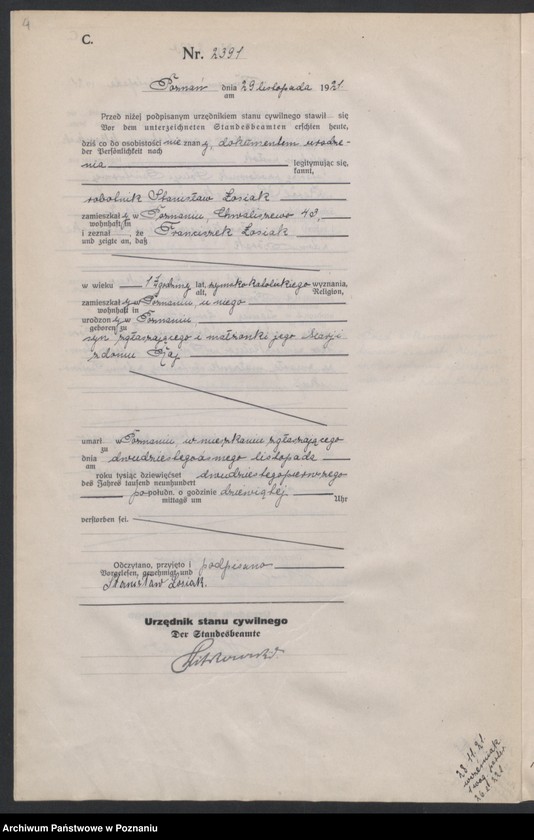 C.
Nr. 2391
Poznań dnia 29 listopada 1921
am
Przed niżej podpisanym urzędnikiem stanu cywilnego stawił się
Vor dem unterzeichneten Standesbeamten erschien heute,
dziś co do osobistości nie znany, dokumentem urodze-
der Persönlichkeit nach
nia legitymując się,
kannt,
robotnik Stanisław Łosiak
zamieszkały w Poznaniu, Chwaliszewo 43,
wohnhaft in
i zeznał, że Franciszek Łosiak
und zeigte an, daß
w wieku 17 godziny lat, rzymsko katolickiego wyznania,
alt, Religion,
zamieszkały w Poznaniu u niego
wohnhaft in
urodzony w Poznaniu
geboren zu
syn zgłaszającego i małżonki jego Marji
z domu Gaj
umarł w Poznaniu, w mieszkaniu zgłaszającego
zu
dnia dwudziestegoósmego listopada
am
roku tysiąc dziewięćset dwudziestegopierwszego
des Jahres tausend neunhundert
po połudn. o godzinie dziewiątej
mittags um Uhr
verstorben sei.
Odczytano, przyjęto i podpisano
Vorgelesen, genehmigt und
Stanisław Łosiak.
Urzędnik stanu cywilnego
Der Standesbeamte
28.11.21.
Archiwum Państwowe w Poznaniu